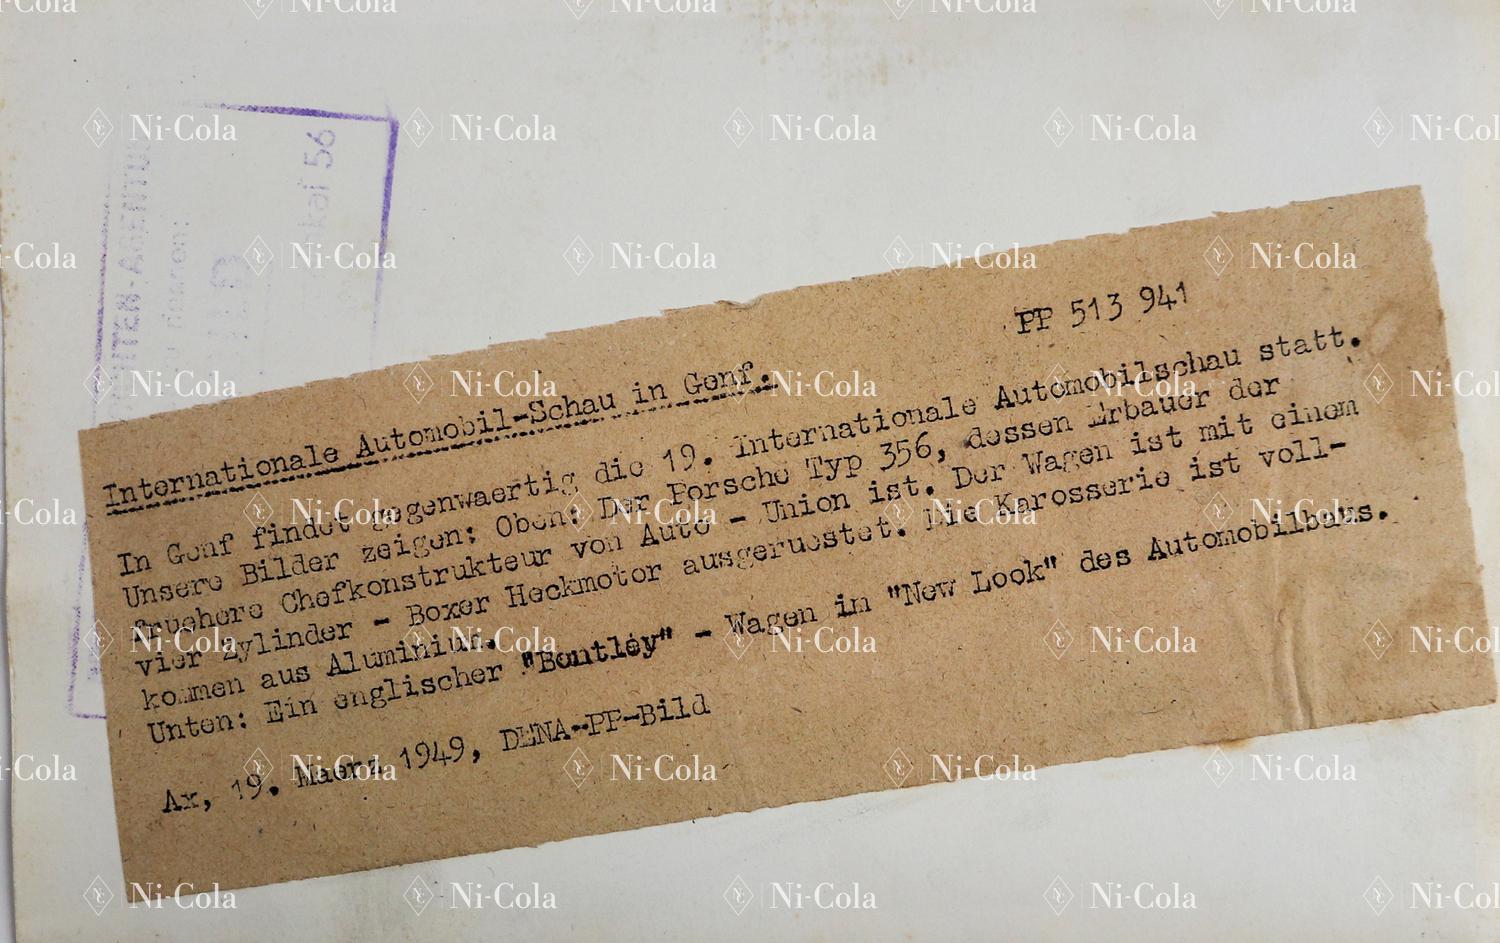 PP 513 941
Internationale Automobil-Schau in Genf.
In Genf findet gegenwaertig die 19. Internationale Automobilschau statt.
Unsere Bilder zeigen: Oben: Der Porsche Typ 356, dessen Erbauer der
fruehere Chefkonstrukteur von Auto - Union ist. Der Wagen ist mit einem
vier Zylinder - Boxer Heckmotor ausgeruestet. Die Karosserie ist voll-
kommen aus Aluminium.
Unten: Ein englischer "Bentley" - Wagen im "New Look" des Automobilbaus.
Ax, 19. Maerz 1949, DENA-PP-Bild
kai 56
Ni-Cola